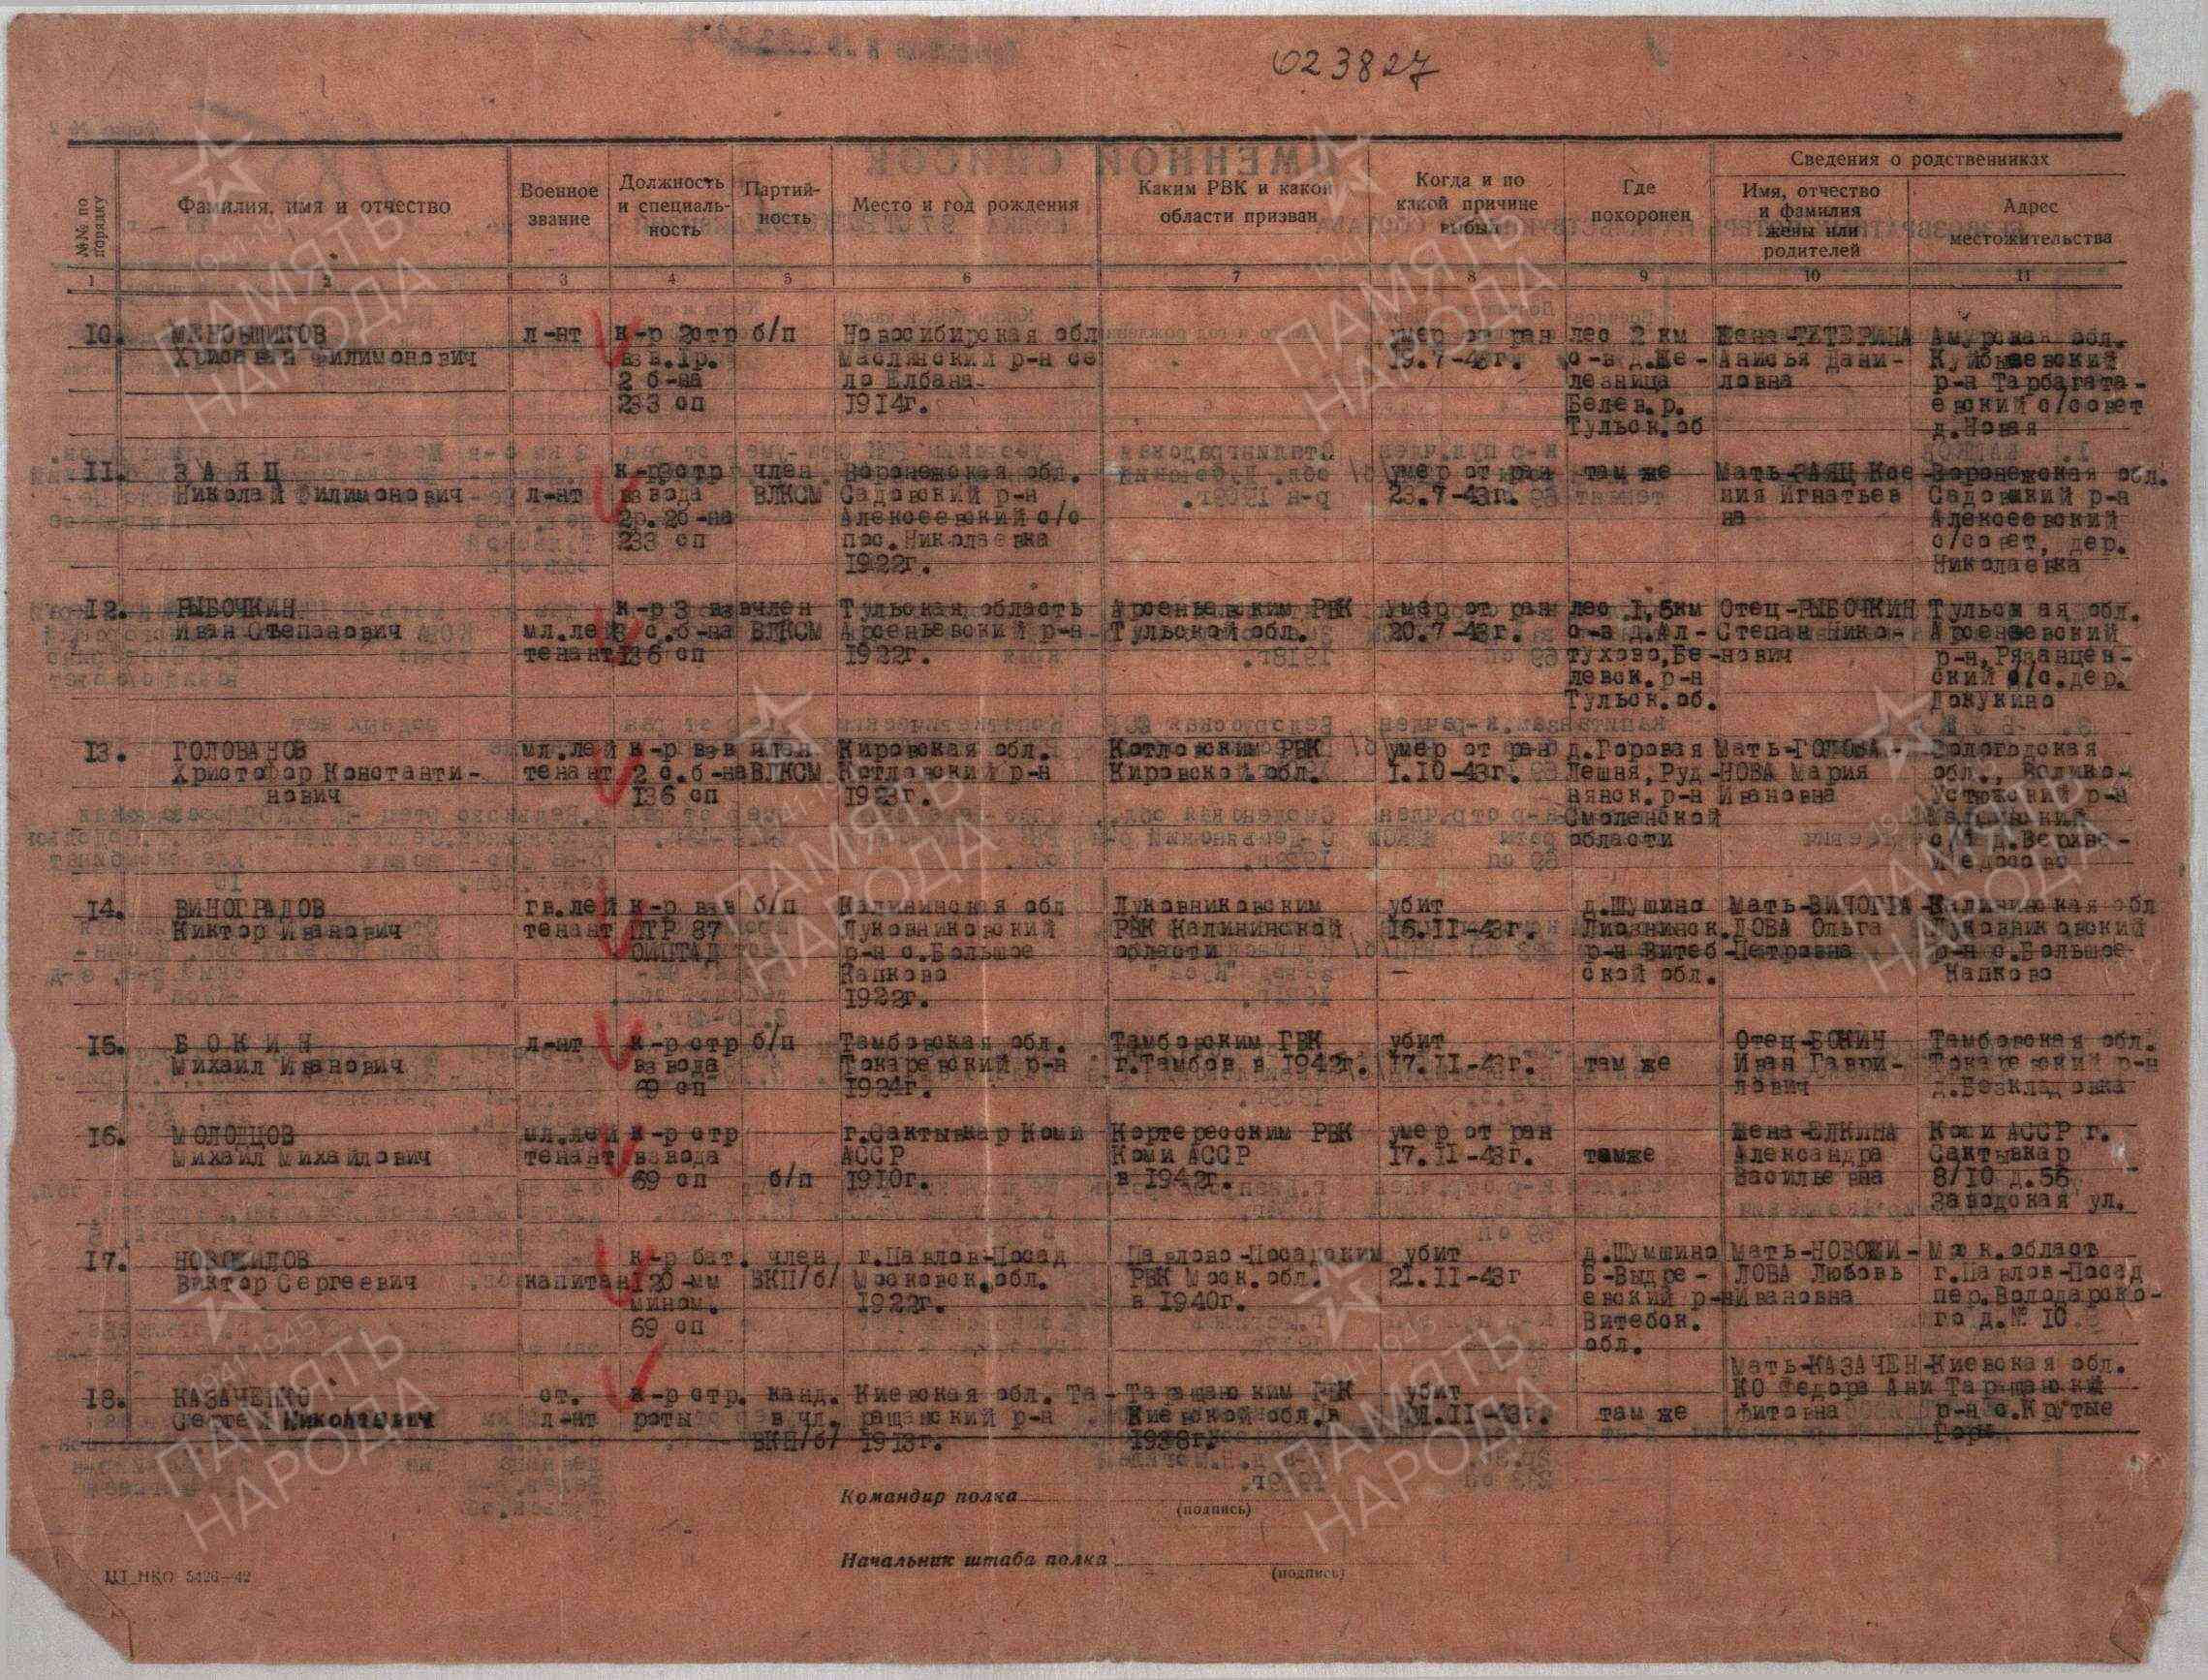 023827
№№ по порядку
Фамилия, имя и отчество
Военное звание
Должность и специаль-ность
Партий-ность
Место и год рождения
Каким РВК и какой области призван
Когда и по какой причине выбыл
Где похоронен
Сведения о родственниках
Имя, отчество и фамилия жены или родителей
Адрес местожительства
1 2 3 4 5 6 7 8 9 10 11
10. МЕНЬЩИКОВ л-нт к-р 2стр б/п Новосибирская обл умер от ран лес 2 км Жена-ТЕТЕРИНА Амурская обл.
Филимонович взв.1р. Маслянский р-н се 19.7-43г. с-в д.Же- Анисья Дани- Куйбышевский
2 б-на ло Елбана. лезница ловна р-н Тарбагата-
233 сп 1914г. Белев.р. евский с/совет
Тульск.об д.Новая
11. ЗАЯЦ к-р стр член Воронежская обл. умер от ран там же Мать-ЗАЯЦ Ксе- Воронежская обл.
Николай Филимонович л-нт взвода ВЛКСМ Садовский р-н 23.7-43г. ния Игнатьев Садовский р-н
2р.2б-на Алексеевский с/с на Алексеевский
233 сп пос.Николаевка с/совет, дер.
1922г. Николаевка
12. РЫБОЧКИН к-р 3 взв член Тульская область Арсеньевским РВК умер от ран лес 1,5км Отец-РЫБОЧКИН Тульская обл.
Иван Степанович мл.лей с.б-на ВЛКСМ Арсеньевский р-н Тульской обл. 20.7-43г. с-в д.Ал- Степан Нико- Арсеньевский
тенант 136 сп 1922г. тухово,Бе- нович р-н,Рязанцев-
левск.р-н ский с/с.дер.
Тульск.об. Докукино
13. ГОЛОВАНОВ мл.лей к-р взв член Кировская обл. Котловским РВК умер от ран д.Горовая Мать-ГОЛОВА- Вологодская
Христофор Константи- тенант 2 с.б-на ВЛКСМ Котловский р-н Кировской обл. 1.10-43г. Лешня,Руд- НОВА Мария обл., Велико-
нович 136 сп 1923г. нянск.р-н Ивановна Устюжский р-н
Смоленской
области с/с д.
14. ВИНОГРАДОВ гв.лей к-р взв б/п Калининская обл Луковниковским убит д.Шушино Мать-ВИНОГРА- Калининская обл
Киктор Иванович тенант ПТР 87 Луковниковский РВК Калининской 16.11-43г. Лиознинск. ДОВА Ольга Луковниковский
р-н с.Большое области р-н Витеб- Петровна р-н с.Большое
Капково ской обл. Капково
1922г.
15. БОКИН л-нт к-р стр б/п Тамбовская обл. Тамбовским ГВК убит Отец-БОКИН Тамбовская обл.
Михаил Иванович взвода Токаревский р-н г.Тамбов в 1942г. 17.11-43г. там же Иван Гаври- Токаревский р-н
69 сп 1924г. лович д.Безкладовка
16. МОЛОДЦОВ мл.лей к-р стр г.Сактывкар Коми Кортересским РВК умер от ран Жена-ЕЛКИНА Коми АССР г.
Михаил Михайлович тенант взвода АССР Коми АССР 17.11-43г. тамже Александра Сактывкар
69 сп б/п 1910г. в 1942г. Васильевна 8/10 д.56
Заводская ул.
17. НОВОЖИЛОВ к-р бат. член г.Павлов-Посад Павлово-Посадским убит д.Шумшино Мать-НОВОЖИ- Моск.област
Виктор Сергеевич капитан 120-мм ВКП/б/ Московск.обл. РВК Моск.обл. 21.11-43г Б-Выдре- ЛОВА Любовь г.Павлов-Посад
мином. 1922г. в 1940г. евский р-н Ивановна пер.Володарско-
69 сп Витебск. го д.№ 10
обл.
Мать-КАЗАЧЕН- Киевская обл.
18. КАЗАЧЕНКО ст. к-р стр. канд. Киевская обл. Та- Таращанским РВК убит КО Федора Ани Таращанский
Сергей Николаевич л-нт роты в чл. ращанский р-н Киевской обл.в 21.11-43г. там же фитовна р-н с.Крутые
ВКП/б/ 1913г. 1938г. Горы
Командир полка
(подпись)
Начальник штаба полка
(подпись)
ЦТ НКО 5426—42
1941-1945
ПАМЯТЬ
НАРОДА